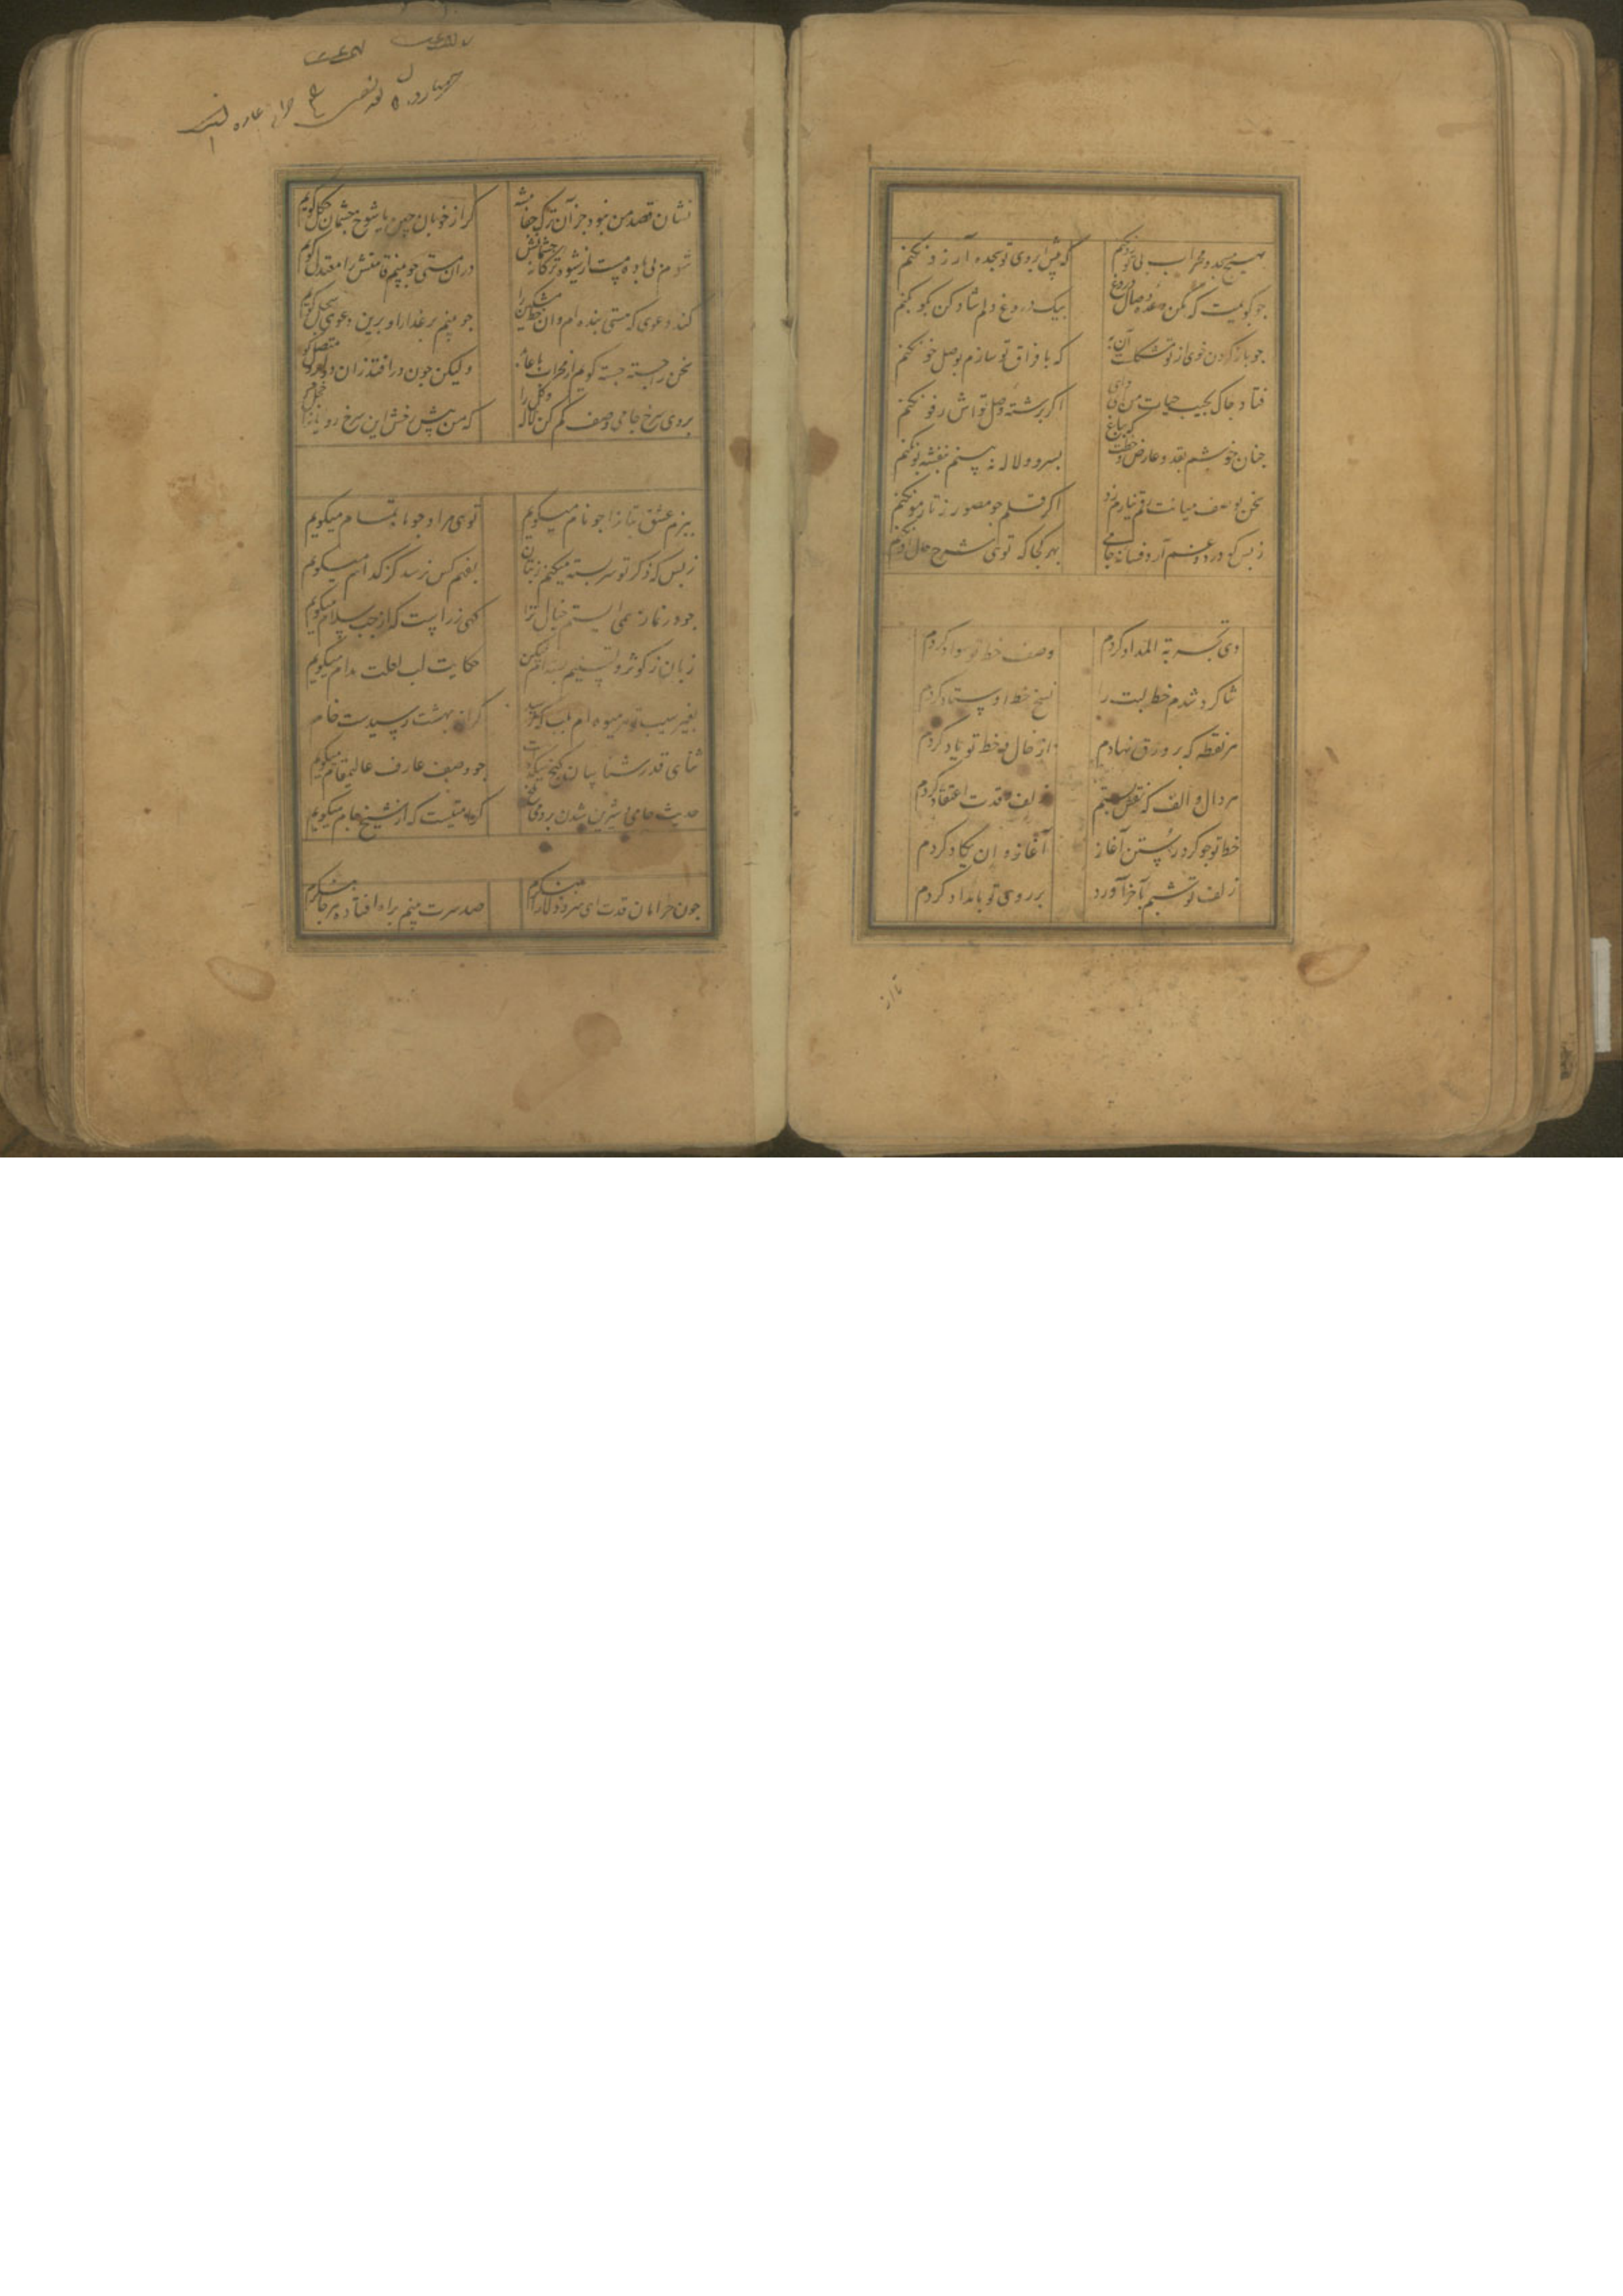 بهیچ مسجد و محراب بی تو رو نکنم که پیش ابروی تو سجده آرزو نکنم
جو کویمت که مکن وعده وصال دروغ بیک دروغ دلم شاد کن بکو نکنم
جو باز کردن خوی از تو مشکلست آن به که با فراق تو سازم بوصل خو نکنم
فتاد جاک بجیب حیات من وای اکر برشته وصل تواش رفو نکنم
جنان خوشم بقد و عارض و خطت که بباغ بسرو و لاله نه بینم بنفشه بو نکنم
سخن بوصف میانت رقم نیارم زد اکر قلم جو مصور ز تار مو نکنم
ز بس که درد و غم آرد فسانه جامی بهر کجا که توی شرح حال او نکنم
دی تجربة المداد کردم وصف خط تو سواد کردم
شاکرد شدم خط لبت را نسخ خط اوستاد کردم
هر نقطه که بر ورق نهادم از خال و خط تو یاد کردم
هر دال و الف که نقش بستم زلف و قدت اعتقاد کردم
خط تو جو کرد رستن آغاز آغاز و ان یکاد کردم
زلف تو شبم بآخر آورد بر روی تو بامداد کردم
نشان قصد من نبود جز آن ترک جفا پیشه کر از خوبان چین یا شوخ جشمان چکل کویم
شوم من بی باده مست از شیوه ترکانه جشمانش در آن مستی جو بینم قامتش را معتدل کویم
کند دعوی که هستی بنده ام و آن خط مشکین را جو بینم بر عذار او برین دعوی سجل کویم
سخن را جسته جسته کویم از هجرانت با عامه ولیکن جون در افتد زان دو لب متصل کویم
بروی سرخ جامی وصف کم کن لاله و کل را که من پیش رخش این سرخ رویانرا خجل کویم
ببزم عشق بتانرا جو نام میکویم توی مراد جو نامه تمام میکویم
ز بس که ذکر تو سربسته میکنم ز بتان بفهم کس نرسد کز کدام میکویم
جو در نماز نمی ایستم خیال ترا کهی ز راست که از جب سلام میکویم
زبان ز کوثر و تسنیم بسته ام لیکن حکایت لب لعلت مدام میکویم
بغیر سیب تو هر میوه ام بلب که رسد کر از بهشت رسیدست خام
ثنای قدرشناسان کنج میکده را جو وصف عارف عالیمقام میکویم
حدیث جامی شیرین شدن بروی کرامتیست که از شیخ جام میکویم
جون خرامان قدت ای سرو دلارا بینم صد سرت بینم براه افتاده هر جا بنکرم